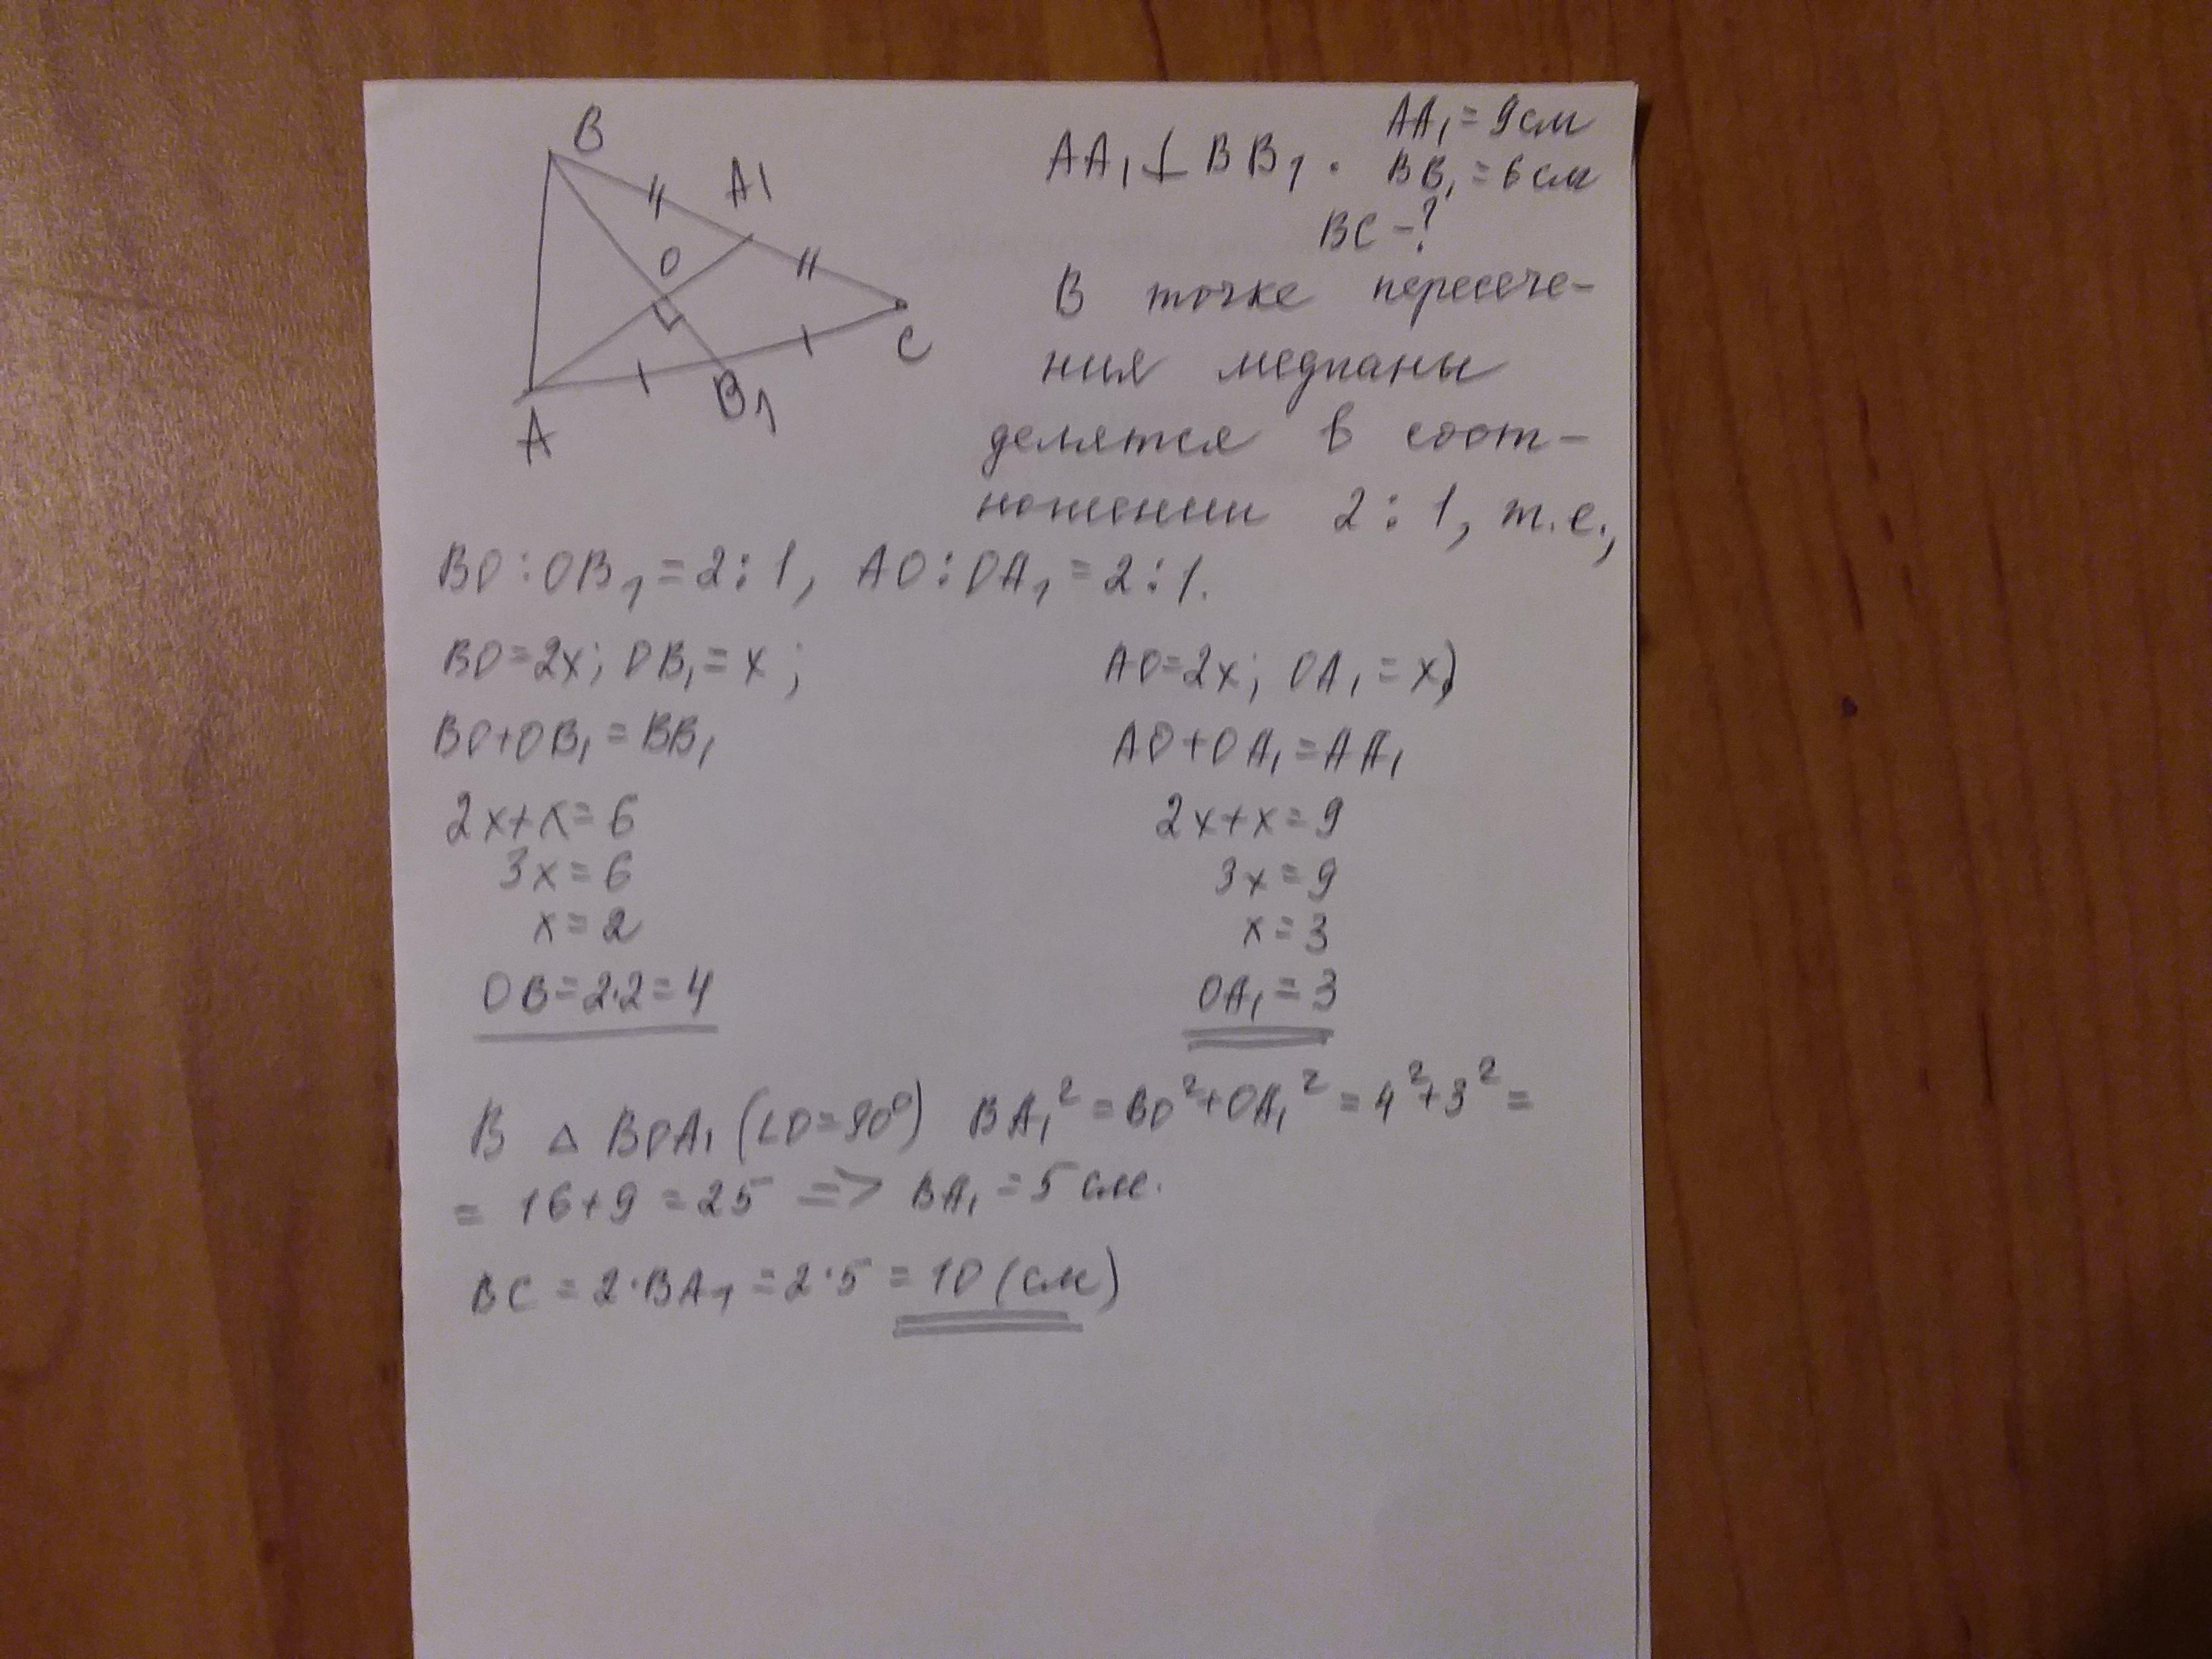 B
A1
O
C
B1
A
AA₁ ⊥ BB₁.
AA₁ = 9см
BB₁ = 6см
BC - ?
В точке пересече-
ния медианы
делятся в соот-
ношении 2:1, т.е.,
BO:OB₁ = 2:1, AO:OA₁ = 2:1.
BO=2x; OB₁ = x;
BO+OB₁ = BB₁
2x+x=6
3x=6
x=2
OB=2·2=4
AO=2x; OA₁ = x;
AO+OA₁ = AA₁
2x+x=9
3x=9
x=3
OA₁ = 3
В △ BOA₁ (∠O=90°) BA₁² = BO²+OA₁² = 4²+3² =
= 16+9 = 25 => BA₁ = 5 см.
BC = 2·BA₁ = 2·5 = 10 (см)